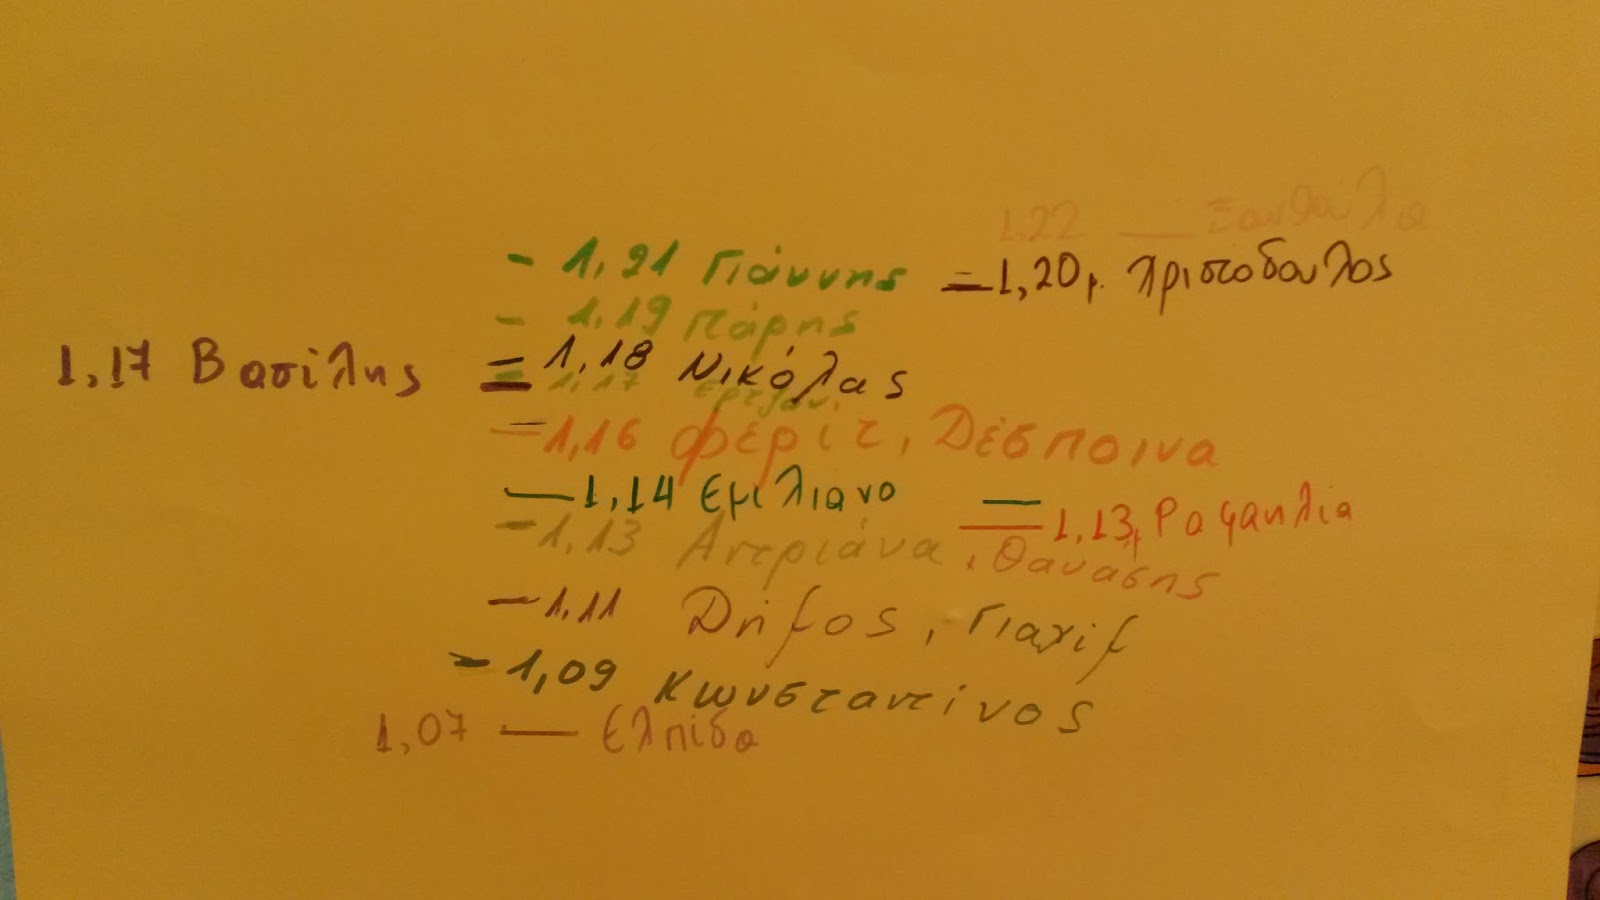 1.22 — Ξανθούλα
- 1,21 Γιάννης = 1,20μ. Χριστόδουλος
- 1,19 Πάρης
1,17 Βασίλης = 1,18 Νικόλας
1,17
- 1,16 Φέρίτ, Δέσποινα
— 1,14 Εμιλιανο
— 1,13μ Ραφαηλία
- 1,13 Αντριάνα, Θανάσης
- 1.11 Δήμος, Γιαχίγ
- 1,09 Κωνσταντίνος
1,07 — Ελπίδα